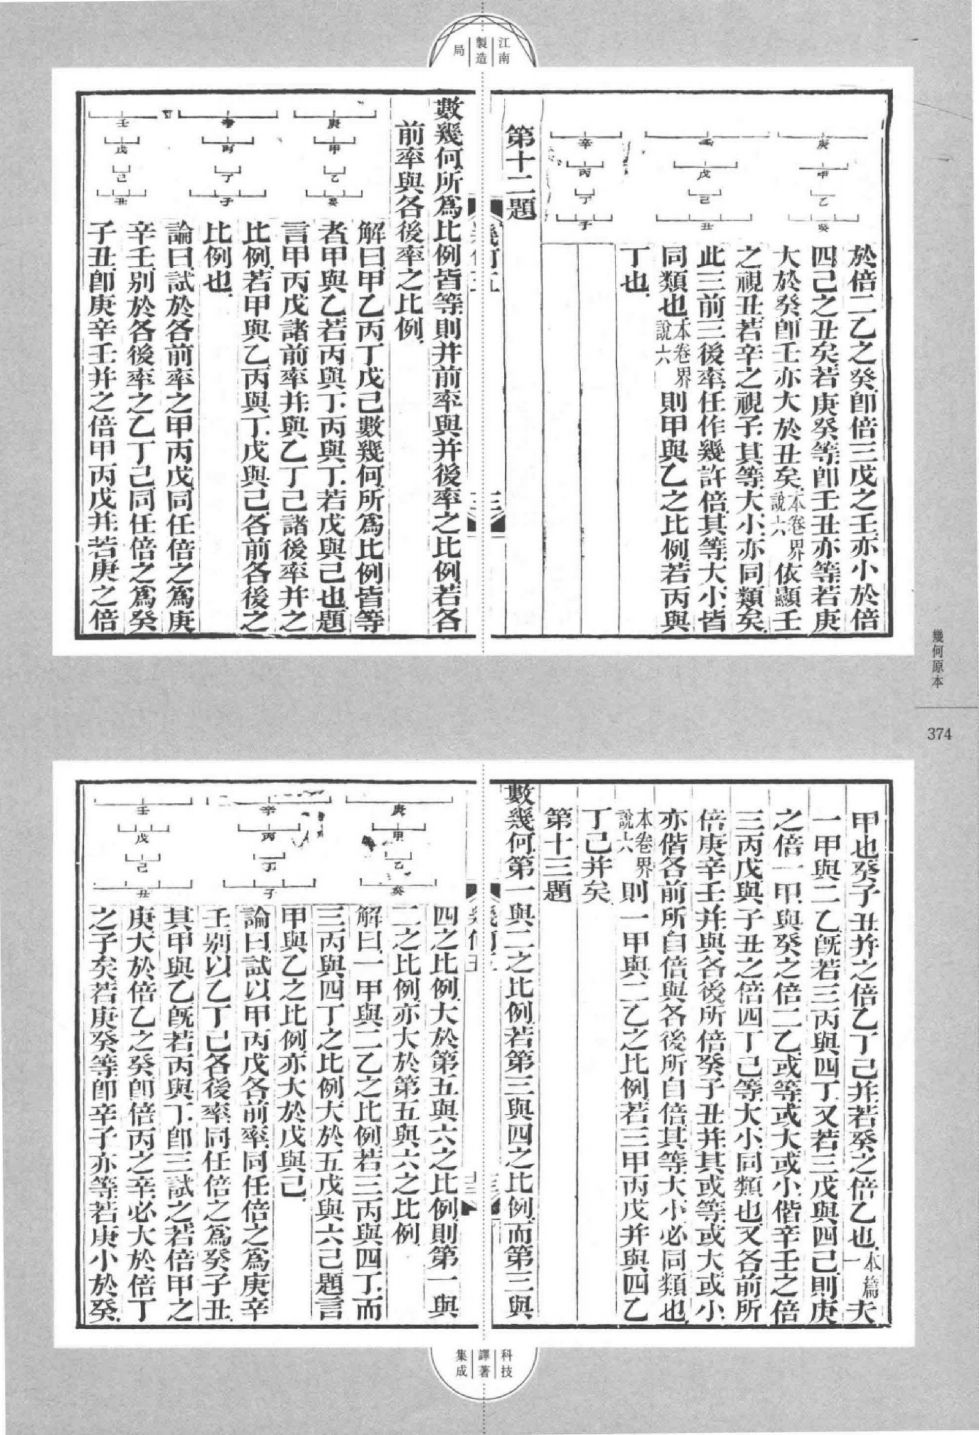 江南
製造
局
庚
甲
乙
癸
壬
戊
己
丑
辛
丙
丁
子
於倍二乙之癸卽倍三戊之壬亦小於倍
四己之丑矣若庚癸等卽壬丑亦等若庚
大於癸卽壬亦大於丑矣本卷界說六依顯壬
之視丑若辛之視子其等大小亦同類矣
此三前三後率任作幾許倍其等大小皆
同類也本卷界說六則甲與乙之比例若丙與
丁也
第十二題
幾何五
數幾何所爲比例皆等則并前率與并後率之比例若各
前率與各後率之比例
庚
甲
乙
癸
辛
丙
丁
子
壬
戊
己
丑
解曰甲乙丙丁戊己數幾何所爲比例皆等
者甲與乙若丙與丁丙與丁若戊與己也題
言甲丙戊諸前率并與乙丁己諸後率并之
比例若甲與乙丙與丁戊與己各前各後之
比例也
論曰試於各前率之甲丙戊同任倍之爲庚
辛壬別於各後率之乙丁己同任倍之爲癸
子丑卽庚辛壬并之倍甲丙戊并若庚之倍
幾何原本
374
甲也癸子丑并之倍乙丁己并若癸之倍乙也本篇一夫
一甲與二乙旣若三丙與四丁又若三戊與四己則庚
之倍一甲與癸之倍二乙或等或大或小偕辛壬之倍
三丙戊與子丑之倍四丁己等大小同類也又各前所
倍庚辛壬并與各後所倍癸子丑并其或等或大或小
亦偕各前所自倍與各後所自倍其等大小必同類也
本卷界說六則一甲與二乙之比例若三甲丙戊并與四乙
丁己并矣
第十三題
數幾何第一與二之比例若第三與四之比例而第三與
幾何五
四之比例大於第五與六之比例則第一與
二之比例亦大於第五與六之比例
庚
甲
乙
癸
辛
丙
丁
子
壬
戊
己
丑
解曰一甲與二乙之比例若三丙與四丁而
三丙與四丁之比例大於五戊與六己題言
甲與乙之比例亦大於戊與己
論曰試以甲丙戊各前率同任倍之爲庚辛
壬別以乙丁己各後率同任倍之爲癸子丑
其甲與乙旣若丙與丁卽三試之若倍甲之
庚大於倍乙之癸卽倍丙之辛必大於倍丁
之子矣若庚癸等卽辛子亦等若庚小於癸
科技
譯著
集成